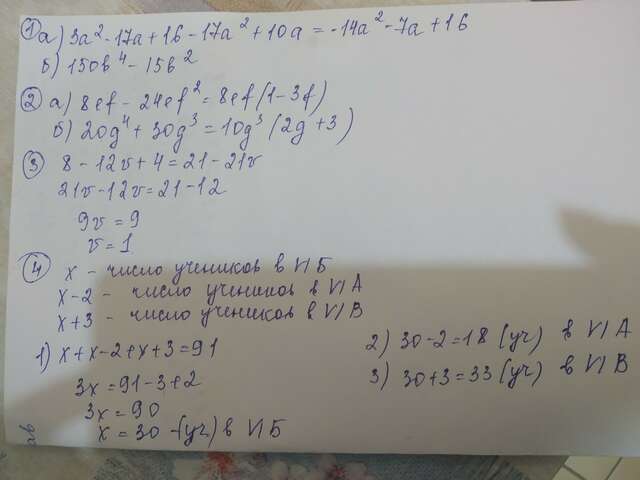 ① а) 3a² - 17a + 16 - 17a² + 10a = -14a² - 7a + 16
б) 150b⁴ - 15b²
② а) 8ef - 24ef² = 8ef(1 - 3f)
б) 20g⁴ + 30g³ = 10g³(2g + 3)
③ 8 - 12v + 4 = 21 - 21v
21v - 12v = 21 - 12
9v = 9
v = 1
④ x - число учеников в VI Б
x - 2 - число учеников в VI А
x + 3 - число учеников в VI В
1) x + x - 2 + x + 3 = 91
3x = 91 - 3 + 2
3x = 90
x = 30 - (уч) в VI Б
2) 30 - 2 = 18 (уч) в VI А
3) 30 + 3 = 33 (уч) в VI В